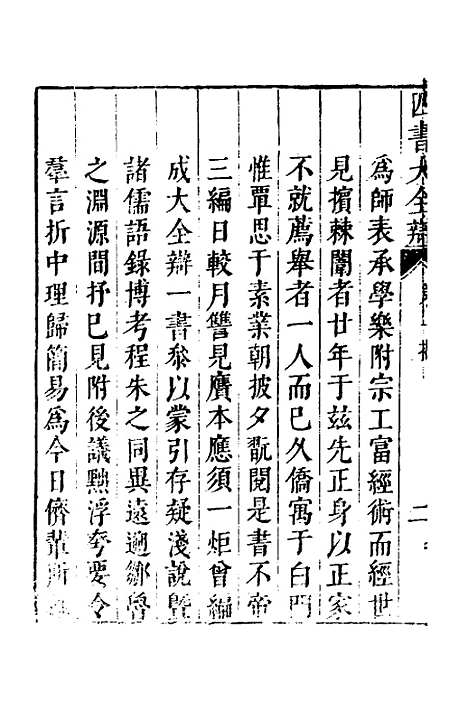 為師表承學樂附宗工富經術而經世
見擯棘闈者廿年于兹先正身以正家
不就薦舉者一人而已久僑寓于白門
惟覃思于素業朝披夕翫閱是書不啻
三編日較月讐見贋本應須一炬曾編
成大全辯一書叅以蒙引存疑淺說曁
諸儒語錄博考程朱之同異遠遡鄒魯
之淵源間抒已見附後議黜浮夸要令
羣言折中理歸簡易為今日儕輩所
四書大全辯
二